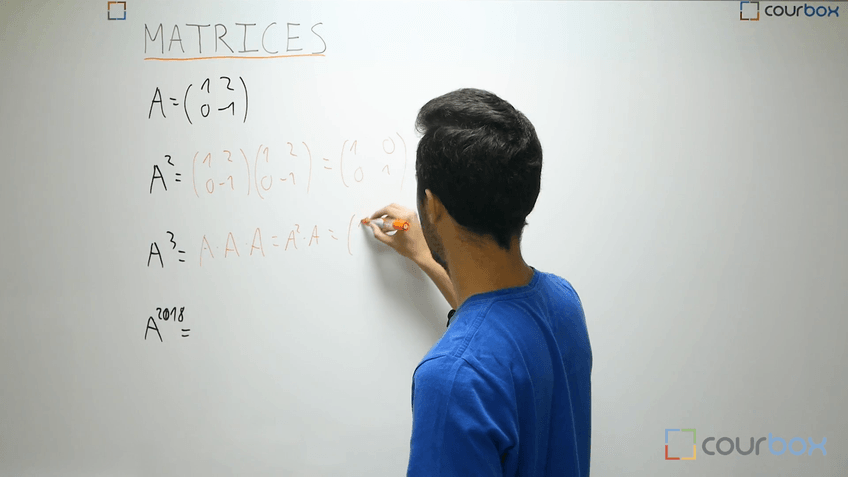 courbox
MATRICES
A = (1 2
0 -1)
A² = (1 2
0 -1) (1 2
0 -1) = (1 0
0 1)
A³ = A·A·A = A²·A = (
A²⁰¹⁸ =
courbox